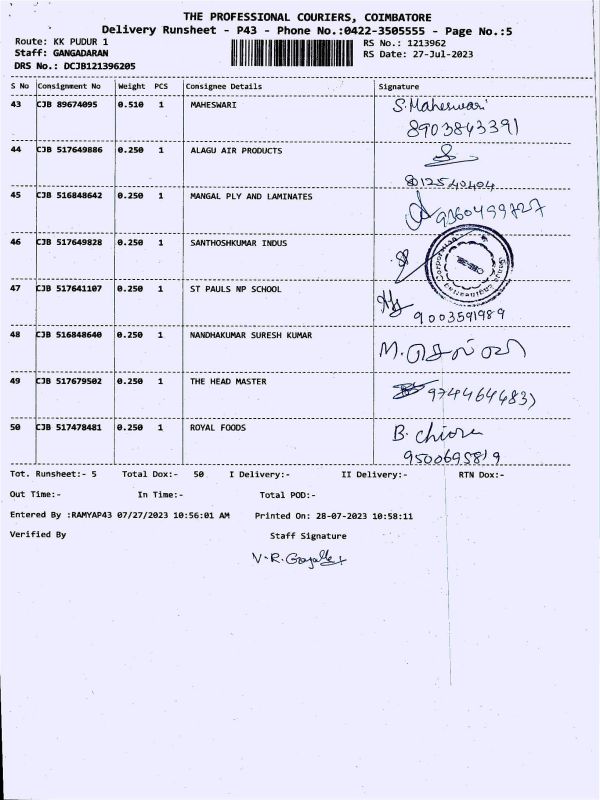 THE PROFESSIONAL COURIERS, COIMBATORE
Delivery Runsheet - P43 - Phone No.:0422-3505555 - Page No.:5
Route: KK PUDUR 1 RS No.: 1213962
Staff: GANGADARAN RS Date: 27-Jul-2023
DRS No.: DCJB121396205
S No Consignment No Weight PCS Consignee Details Signature
43 CJB 89674095 0.510 1 MAHESWARI S.Maheswari
8903843391
44 CJB 517649886 0.250 1 ALAGU AIR PRODUCTS
8012540404
45 CJB 516848642 0.250 1 MANGAL PLY AND LAMINATES
46 CJB 517649828 0.250 1 SANTHOSHKUMAR INDUS
47 CJB 517641107 0.250 1 ST PAULS NP SCHOOL
9003591989
48 CJB 516848640 0.250 1 NANDHAKUMAR SURESH KUMAR M.செல்வி
49 CJB 517679502 0.250 1 THE HEAD MASTER
50 CJB 517478481 0.250 1 ROYAL FOODS B.
9500695819
Tot. Runsheet:- 5 Total Dox:- 50 I Delivery:- II Delivery:- RTN Dox:-
Out Time:- In Time:- Total POD:-
Entered By :RAMYAP43 07/27/2023 10:56:01 AM Printed On: 28-07-2023 10:58:11
Verified By Staff Signature
V.R.